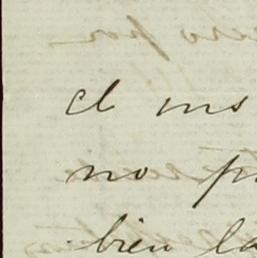 el ins
no p
bien la